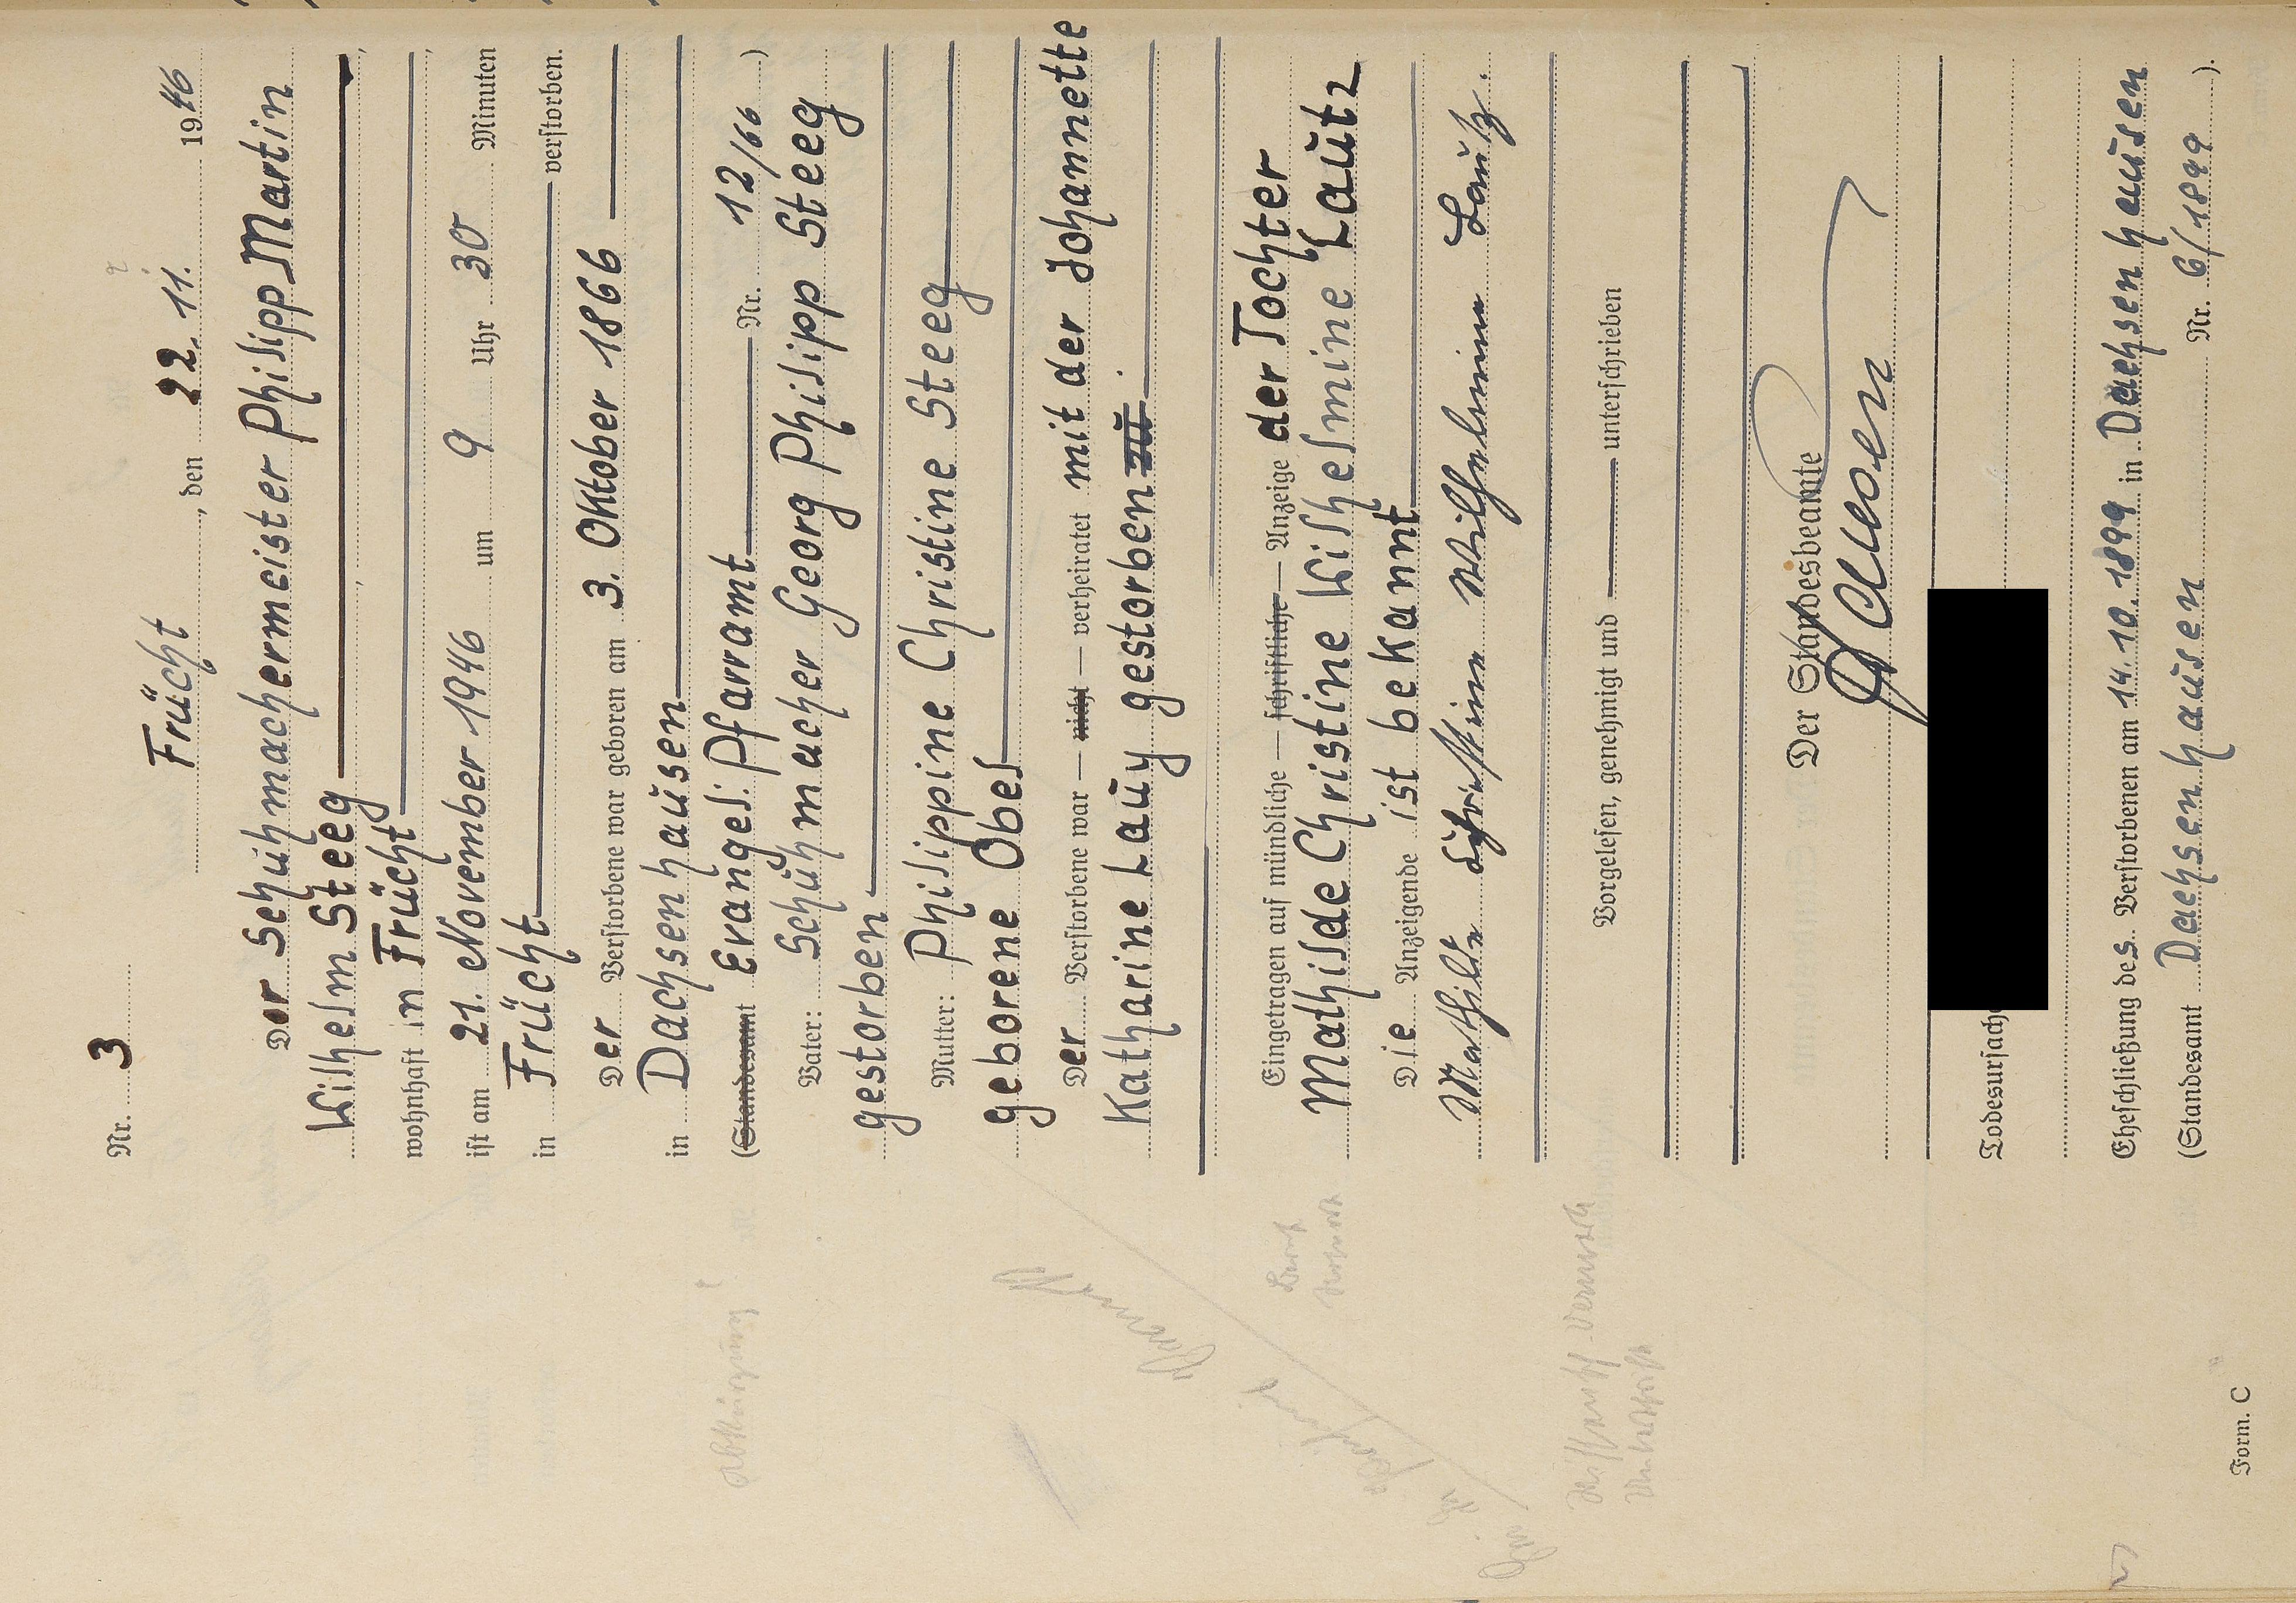 Nr. 3
Frücht, den 22. 11. 1946
Der Schuhmachermeister Philipp Martin
Wilhelm Steeg,
wohnhaft in Frücht,
ist am 21. November 1946 um 9 Uhr 30 Minuten
in Frücht verstorben.
Der Verstorbene war geboren am 3. Oktober 1866
in Dachsenhausen
(Standesamt Evangel. Pfarramt Nr. 12/66)
Vater: Schuhmacher Georg Philipp Steeg
gestorben
Mutter: Philippine Christine Steeg
geborene Obel
Der Verstorbene war — nicht — verheiratet mit der Johannette
Katharine Lauy gestorben zu.
Eingetragen auf mündliche — schriftliche — Anzeige der Tochter
Mathilde Christine Wilhelmine Lautz
Die Anzeigende ist bekannt
Vorgelesen, genehmigt und unterschrieben
Mathilde Christine Wilhelmine Lautz.
Der Standesbeamte
Todesursache
Eheschließung des Verstorbenen am 14. 10. 1899 in Dachsenhausen
(Standesamt Dachsenhausen Nr. 6/1899).
Form. C